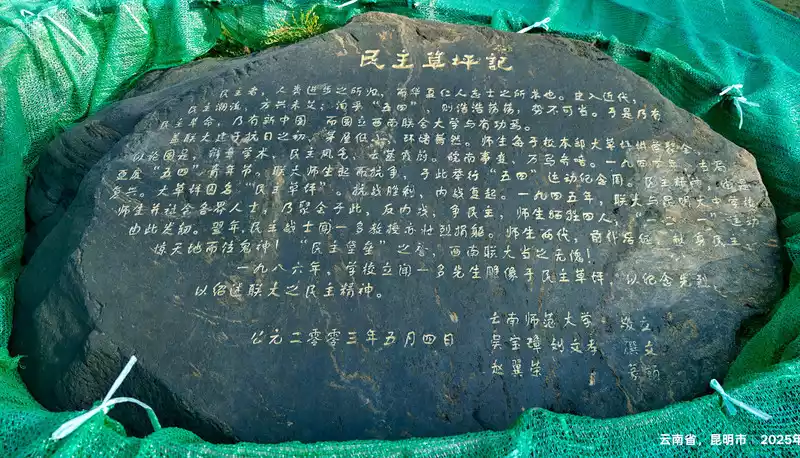 民主草坪记
民主者，人类进步之所汲，而华夏仁人志士之所求也。逮入近代，
民主潮涌，方兴未艾；洎乎“五四”，则浩浩荡荡，势不可当。于是乃有
民主革命，乃有新中国 而国立西南联合大学与有功焉。
盖联大建于抗日之初，茅屋低 环堵萧然。师生每于校本部大草坪
以论国是，辩章学术，民主风气，蔚。皖南事变，万马齐喑。一九四 年，
“五四”青年节，联大师生起而抗争，于此举行“五四”运动纪念周。民主精神，
复兴。大草坪因名“民主草坪”。抗战胜利，内战复起。一九四五年，联大与昆明大中学校
师生并社会各界人士，乃聚会于此，反内战，争民主，师生牺牲四人，“一二·一”运动
也此发轫。翌年，民主战士闻一多教授亦壮烈捐躯。师生两代，前仆后继，
惊天地而泣鬼神！“民主堡垒”之誉，西南联大当之无愧！
一九八六年，学校立闻一多先生雕像于民主草坪，以纪念先烈，
以绍述联大之民主精神。
云南师范大学 敬立
公元二零零三年五月四日 吴宝璋 刘文孝 撰文
赵翼荣
云南省，昆明市 2025年